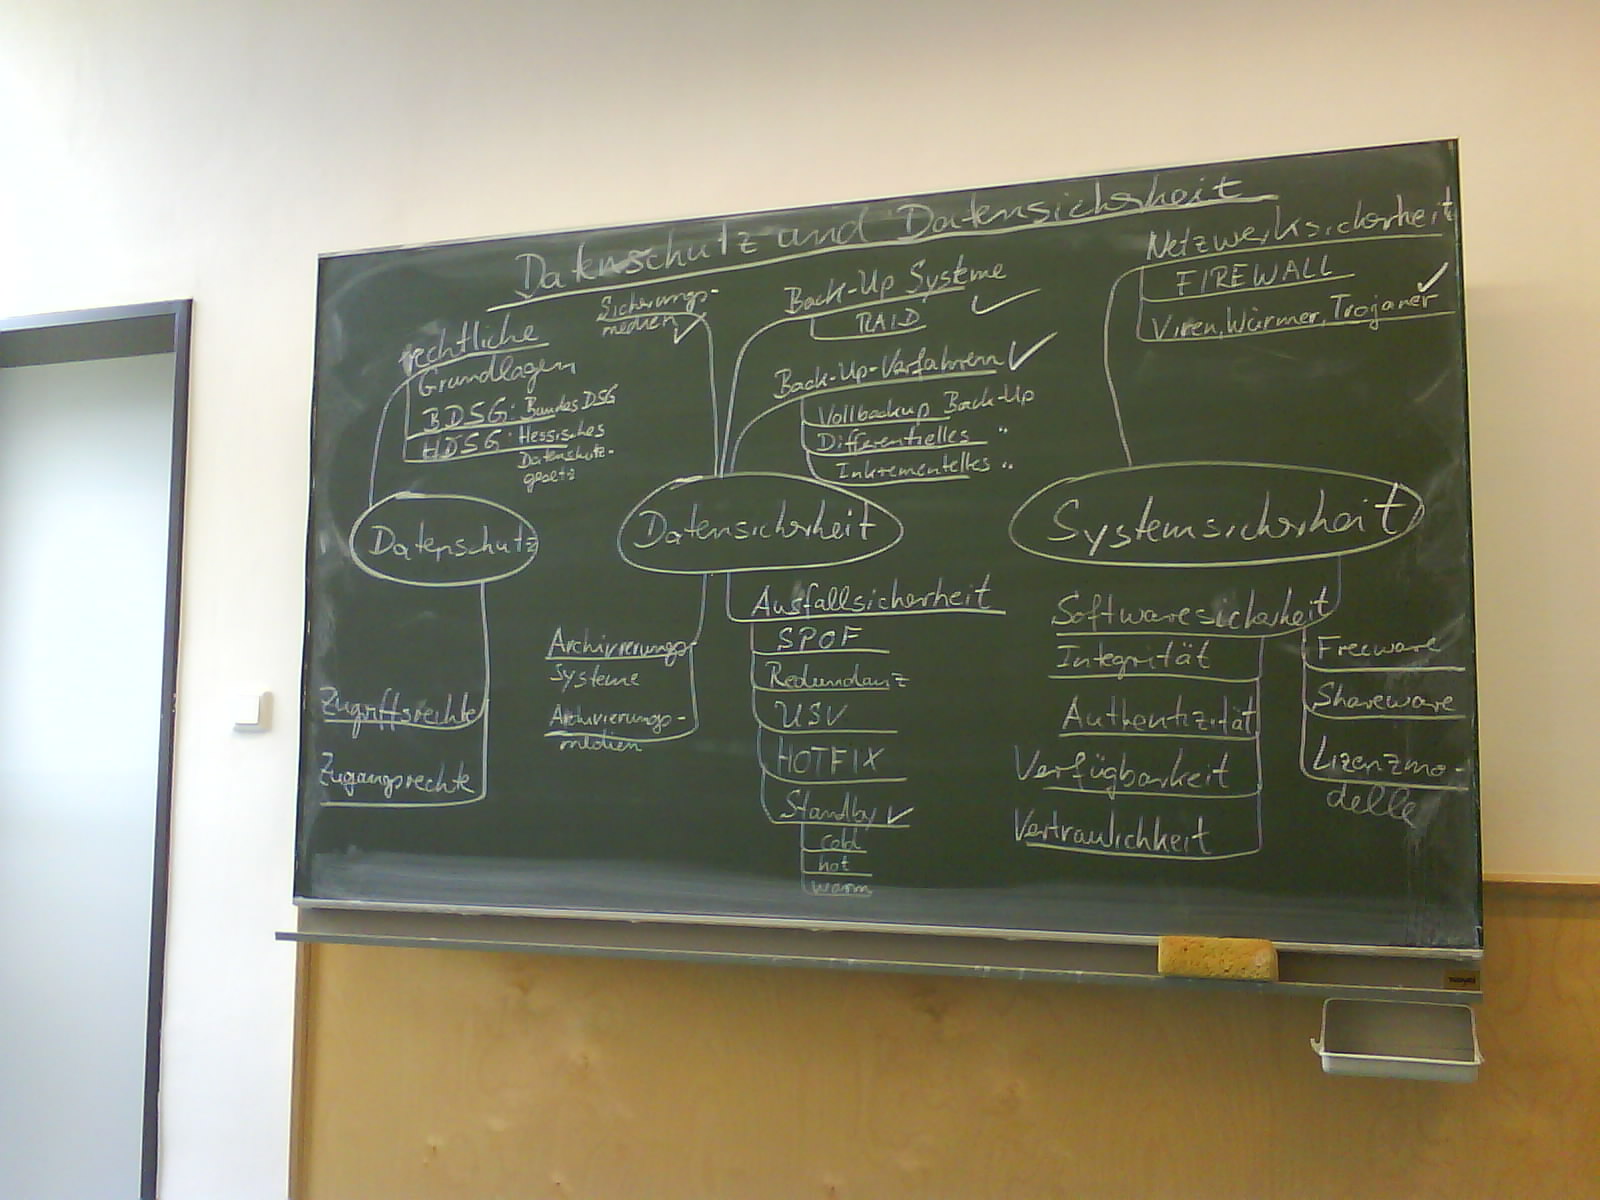 Datenschutz und Datensicherheit
rechtliche
Grundlagen
BDSG: Bundes DSG
HDSG: Hessisches
Datenschutz-
gesetz
Datenschutz
Zugriffsrechte
Zugangsrechte
Sicherungs-
medien ✓
Back-Up Systeme ✓
RAID
Back-Up-Verfahrenn ✓
Vollbackup Back-Up
Differentielles "
Inkrementelles "
Datensicherheit
Archivierungs
Systeme
Archivierungs-
medien
Ausfallsicherheit
SPOF
Redundanz
USV
HOTFIX
Standby ✓
cold
hot
warm
Netzwerksicherheit
FIREWALL
Viren, Würmer, Trojaner ✓
Systemsicherheit
Softwaresicherheit
Integrität
Authentizität
Verfügbarkeit
Vertraulichkeit
Freeware
Shareware
Lizenzmo-
delle